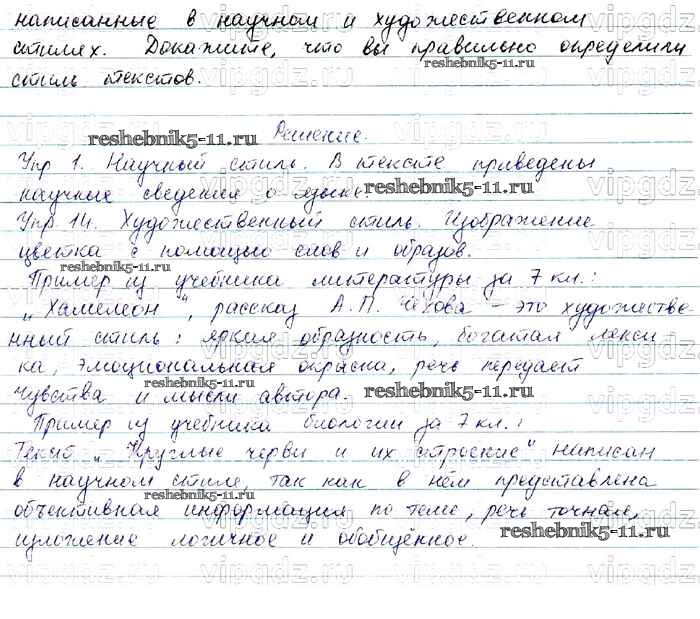 написанные в научном и художественном
стилях. Докажите, что вы правильно определили
стиль текстов.
reshebnik5-11.ru
Решение.
reshebnik5-11.ru
Упр 1. Научный стиль. В тексте приведены
научные сведения о языке.
reshebnik5-11.ru
Упр 14. Художественный стиль. Изображение
цветка с помощью слов и образов.
reshebnik5-11.ru
Пример из учебника литературы за 7 кл.:
„Хамелеон“, рассказ А.П. Чехова – это художестве-
reshebnik5-11.ru
нный стиль: яркая образность, богатая лекси
ка, эмоциональная окраска, речь передаёт
чувства и мысли автора.
reshebnik5-11.ru
reshebnik5-11.ru
Пример из учебника биологии за 7 кл.:
Текст „Круглые черви и их строение“ написан
reshebnik5-11.ru
в научном стиле, так как в нём представлена
reshebnik5-11.ru
объективная информация по теме, речь точная,
изложение логичное и обобщённое.
reshebnik5-11.ru